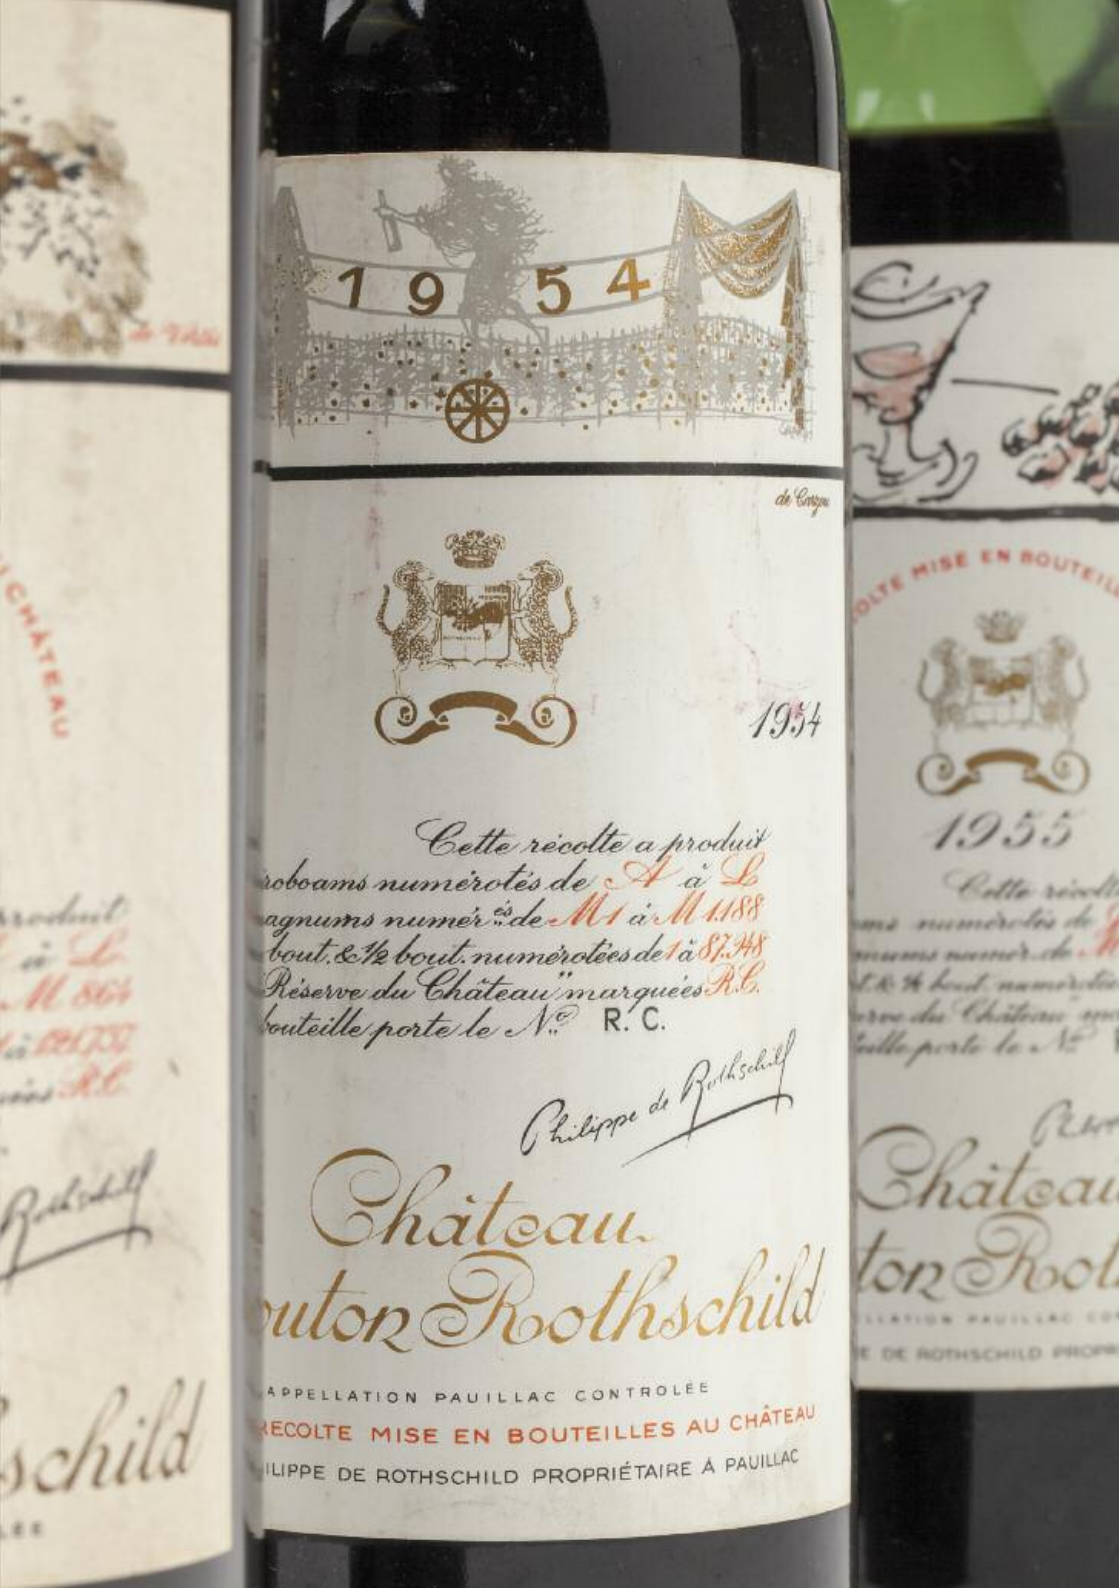 1954
de Carzou
1954
Cette récolte a produit
roboams numérotés de A à L
agnums numér.és de M1 à M1.188
bout. & 1/2 bout. numérotées de 1 à 87.948
"Réserve du Château" marquées R.C.
bouteille porte le No. R. C.
Philippe de Rothschild
Château
outon Rothschild
APPELLATION PAUILLAC CONTROLÉE
RECOLTE MISE EN BOUTEILLES AU CHÂTEAU
ILIPPE DE ROTHSCHILD PROPRIÉTAIRE À PAUILLAC
U CHÂTEAU
produit
à L.
M 864
R.C.
Rothschild
schild
LÉE
OLTE MISE EN BOUTEILL
1955
Cette récolt
ms numérotés de
bout. numérotées
rve du Château
teille porte le No
Château
ton Rot
LLATION PAUILLAC CO
E DE ROTHSCHILD PROPR